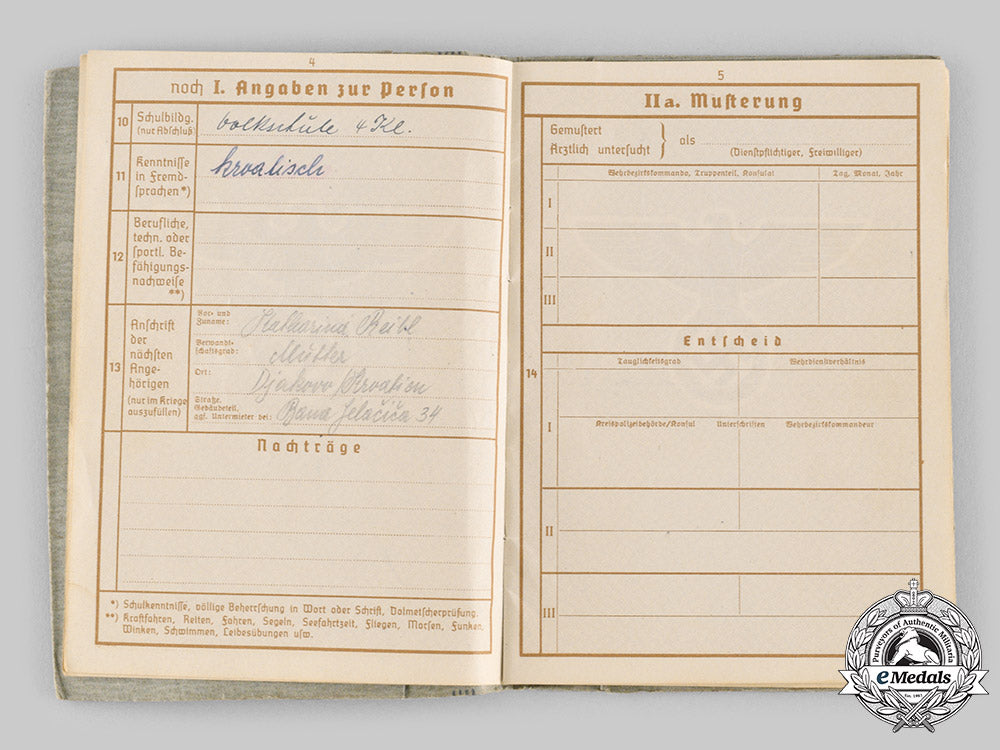 4
noch I. Angaben zur Person
10
Schulbildg.
(nur Abschluß)
Volkschule 4 Kl.
11
Kenntnisse
in Fremd-
sprachen*)
kroatisch
12
Berufliche,
techn. oder
sportl. Be-
fähigungs-
nachweise
**)
13
Anschrift
der
nächsten
Ange-
hörigen
(nur im Kriege
auszufüllen)
Vor- und
Zuname:
Katharina
Verwandt-
schaftsgrad:
Mutter
Ort:
Djakovo/Kroatien
Straße,
Gebäudeteil,
ggf. Untermieter bei:
Bana Jelačića 34
Nachträge
*) Schulkenntnisse, völlige Beherrschung in Wort oder Schrift, Dolmetscherprüfung.
**) Kraftfahren, Reiten, Fahren, Segeln, Seefahrtzeit, Fliegen, Morsen, Funken,
Winken, Schwimmen, Leibesübungen usw.
5
IIa. Musterung
Gemustert
Ärztlich untersucht } als
(Dienstpflichtiger, Freiwilliger)
Wehrbezirkskommando, Truppenteil, Konsulat Tag, Monat, Jahr
I
II
III
Entscheid
14
Tauglichkeitsgrad Wehrdienstverhältnis
I
Kreispolizeibehörde/Konsul Unterschriften Wehrbezirkskommandeur
II
III
Purveyors of Authentic Militaria
eMedals
Est. 1967